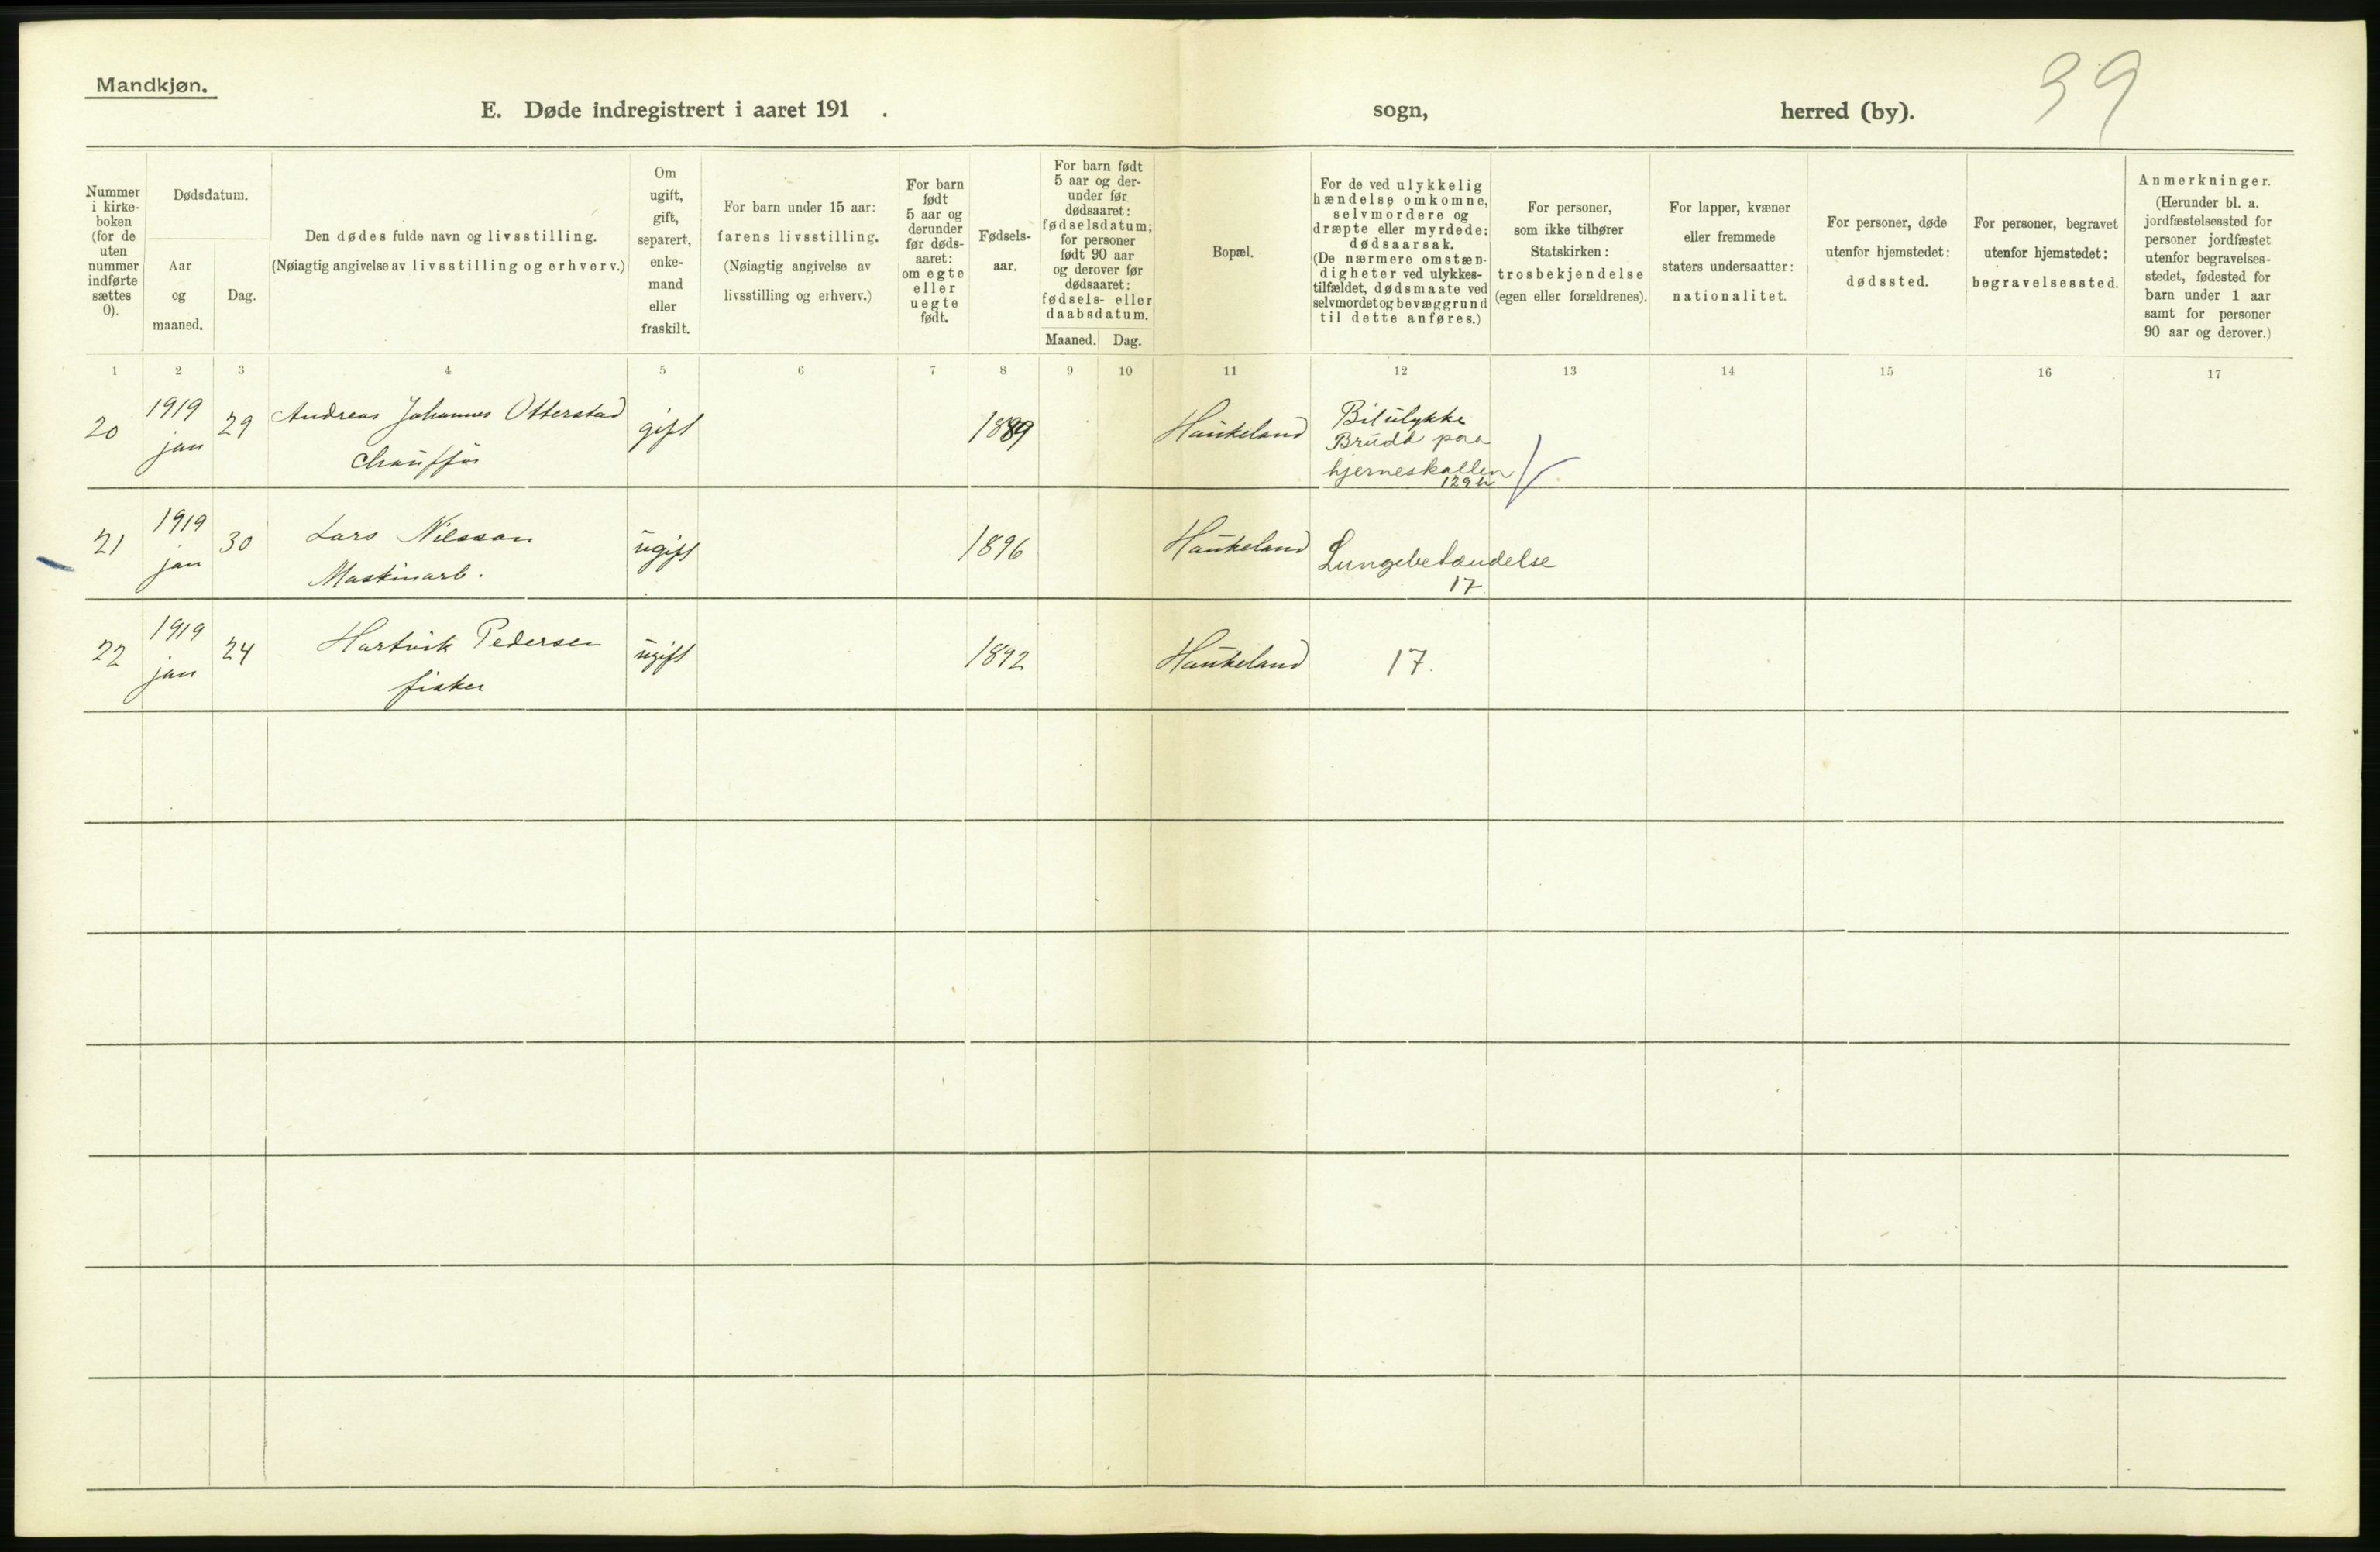 Mandkjøn.
39
E. Døde indregistrert i aaret 191 . sogn, herred (by).
Nummer i kirkeboken (for de uten nummer indførte sættes 0).
Dødsdatum.
Aar og maaned.
Dag.
Den dødes fulde navn og livsstilling.
(Nøiagtig angivelse av livsstilling og erhverv.)
Om ugift, gift, separert, enkemand eller fraskilt.
For barn under 15 aar:
farens livsstilling.
(Nøiagtig angivelse av
livsstilling og erhverv.)
For barn født 5 aar og derunder før dødsaaret: om egte eller uegte født.
Fødselsaar.
For barn født
5 aar og der-
under før
dødsaaret:
fødselsdatum;
for personer
født 90 aar
og derover før
dødsaaret:
fødsels- eller
daabsdatum.
Maaned. Dag.
Bopæl.
For de ved ulykkelig
hændelse omkomne,
selvmordere og
dræpte eller myrdede:
dødsaarsak.
(De nærmere omstæn-
digheter ved ulykkes-
tilfældet, dødsmaate ved
selvmordet og bevæggrund
til dette anføres.)
For personer,
som ikke tilhører
Statskirken:
trosbekjendelse
(egen eller forældrenes).
For lapper, kvæner
eller fremmede
staters undersaatter:
nationalitet.
For personer, døde
utenfor hjemstedet:
dødssted.
For personer, begravet
utenfor hjemstedet:
begravelsessted.
Anmerkninger.
(Herunder bl. a.
jordfæstelsessted for
personer jordfæstet
utenfor begravelses-
stedet, fødested for
barn under 1 aar
samt for personer
90 aar og derover.)
1 2 3 4 5 6 7 8 9 10 11 12 13 14 15 16 17
20 1919 jan 29 Andreas Johannes Otterstad gift 1889 Haukeland Bilulykke
chauffør Brudd paa
hjerneskallen
129
21 1919 jan 30 Lars Nilsson ugift 1896 Haukeland Lungebetændelse
Maskinarb. 17
22 1919 jan 24 Hartvik Pedersen ugift 1892 Haukeland 17.
fisker